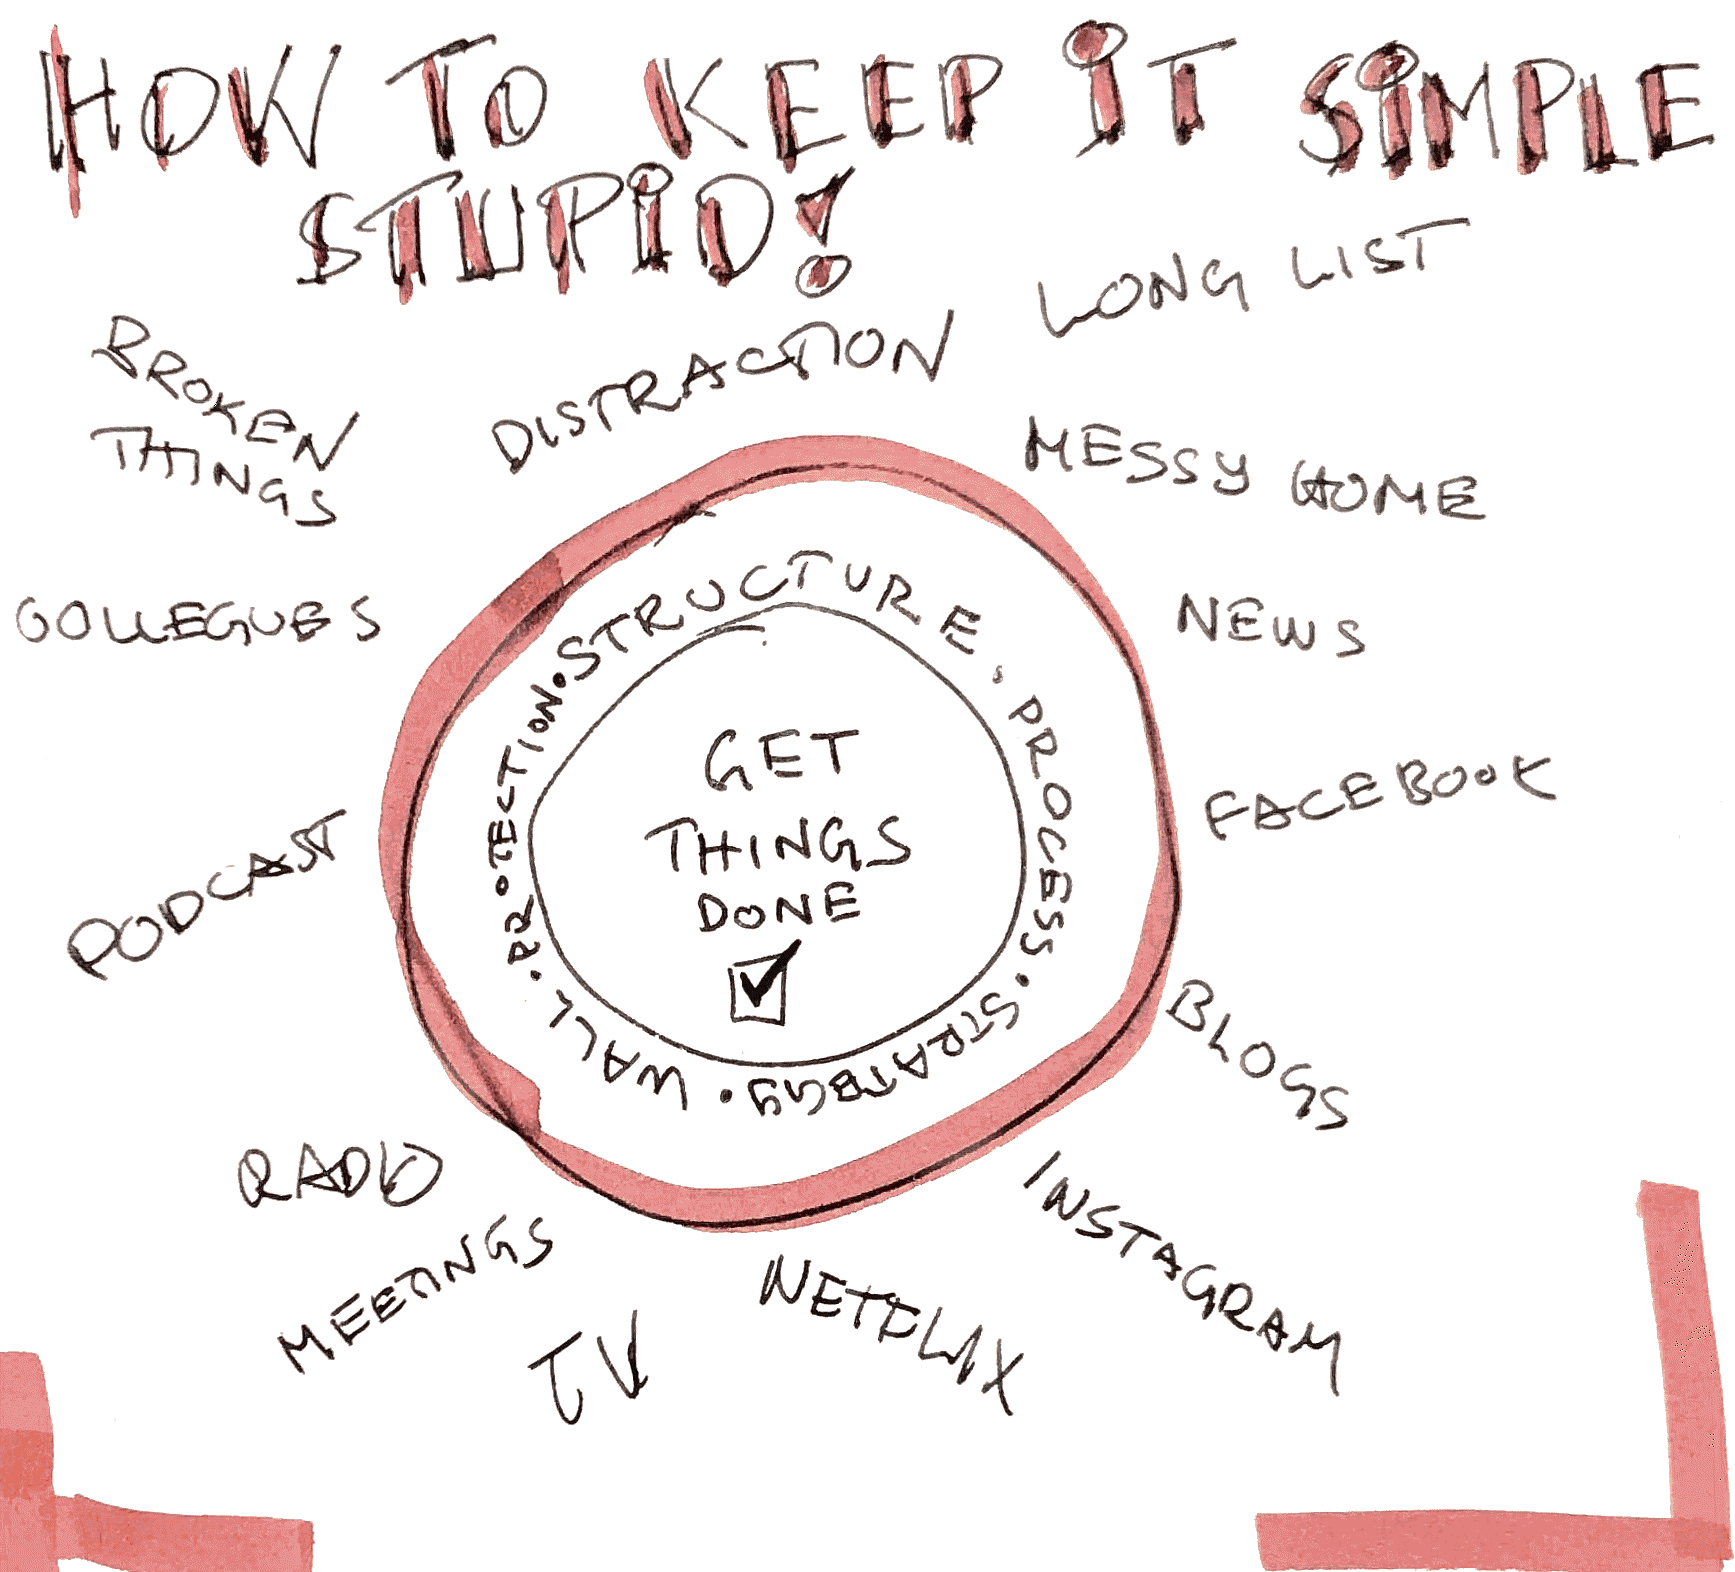 HOW TO KEEP IT SIMPLE
STUPID!
LONG LIST
BROKEN
THINGS
DISTRACTION
MESSY HOME
COLLEGUES
NEWS
STRUCTURE • PROCESS • STRATEGY • WALL • PROTECTION •
GET
THINGS
DONE
FACEBOOK
PODCAST
BLOGS
RADIO
INSTAGRAM
MEETINGS
NETFLIX
TV